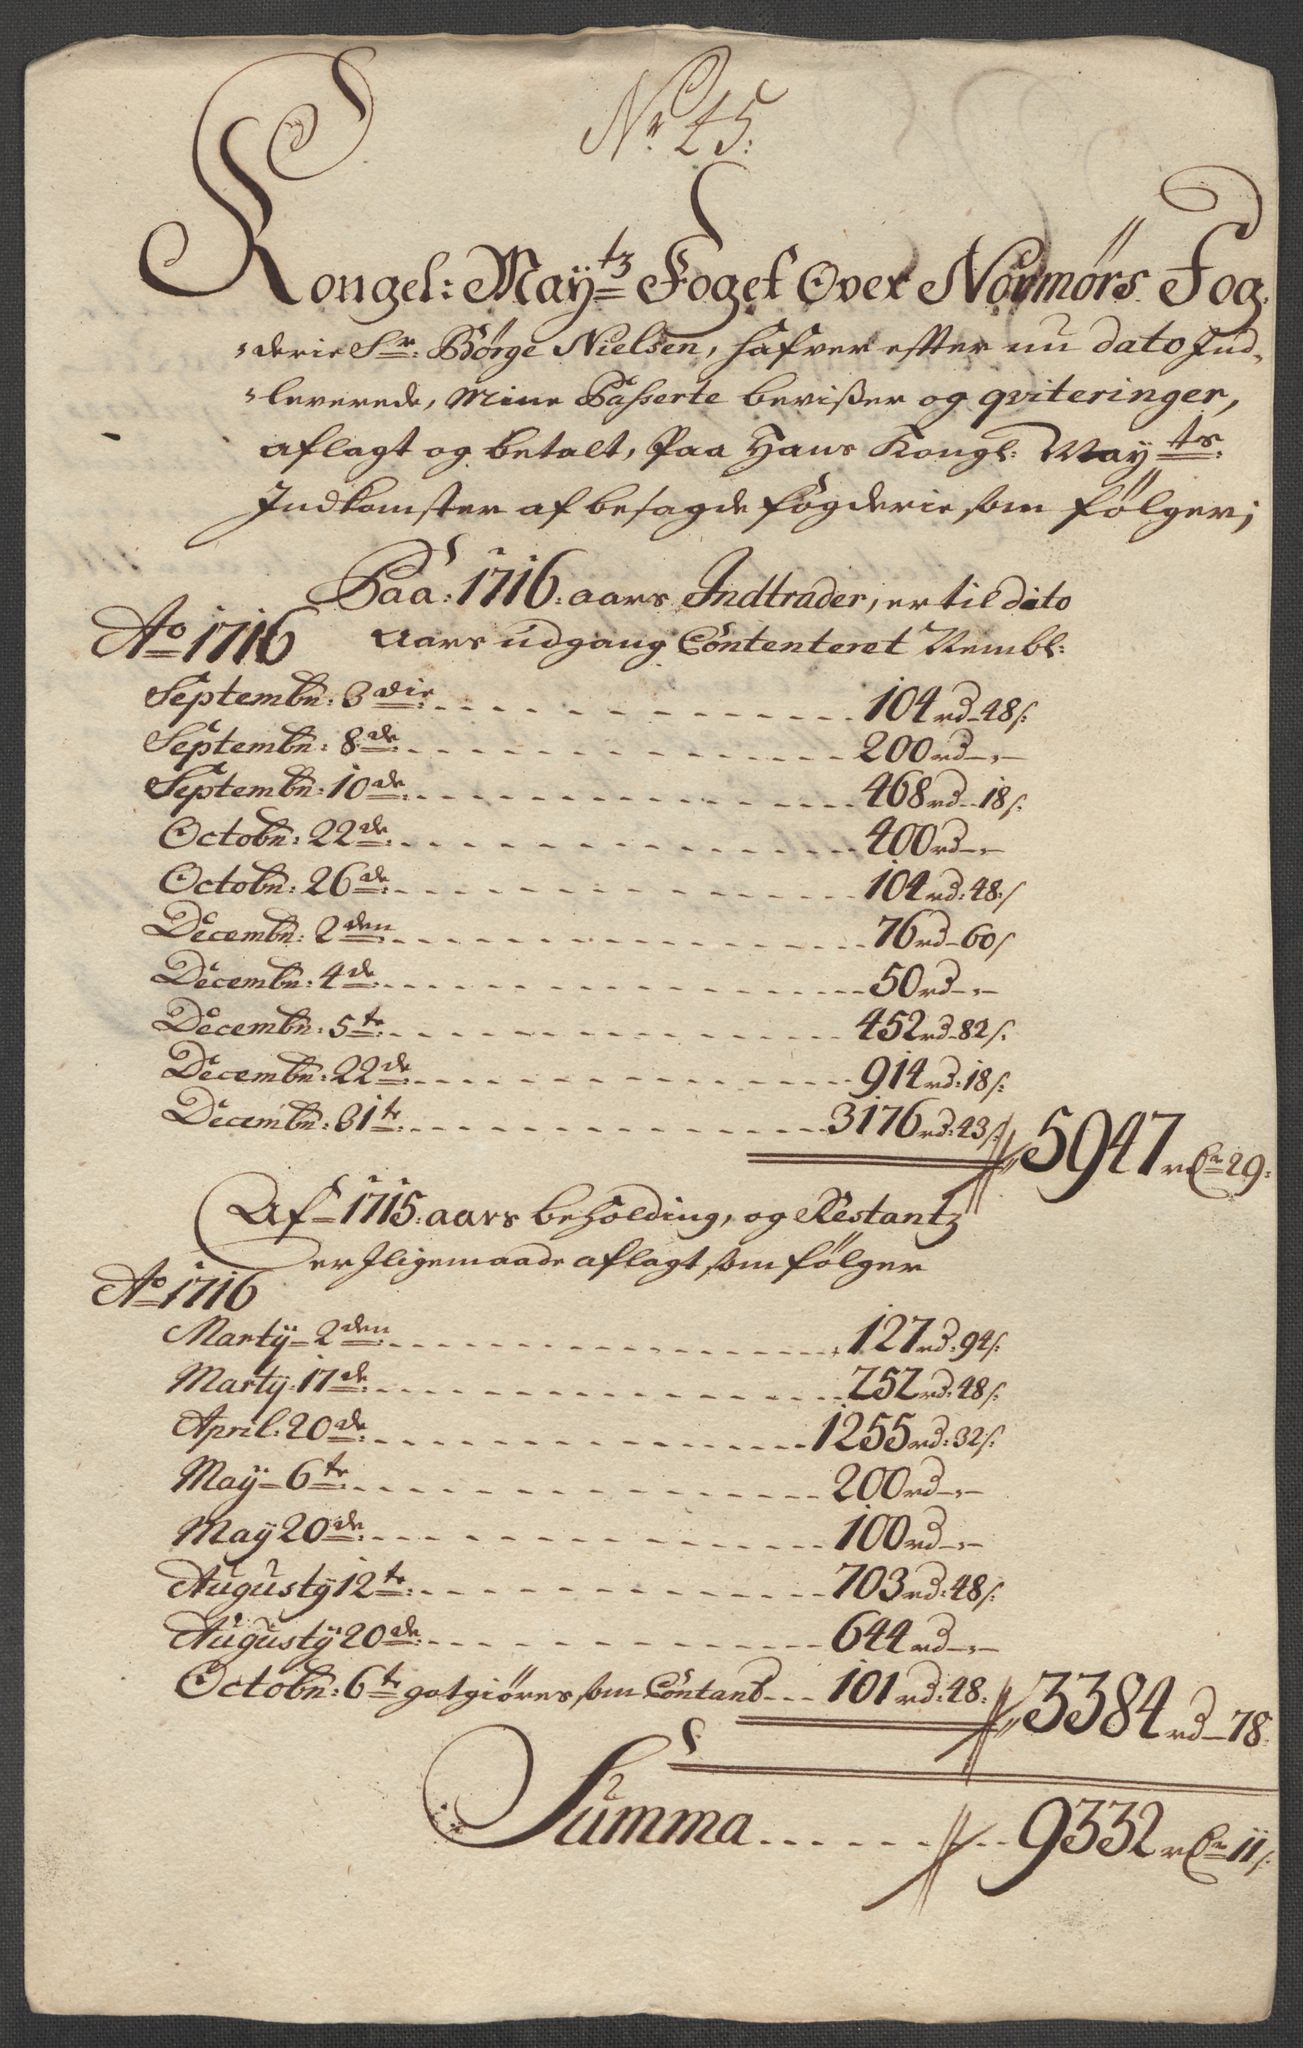 No 45:
Kongel: May^tz Foget Over Normørs Fog,
derie Sr: Børge Nielsen, hafver efter nu dato Ind,
leverede, Mine Passerte bevißer og qviteringer,
aflagt og betalt, Paa Hans Kongl: May^ts
Indkomster af besagde fogderie som følger;
Paa: 1716: aars Indtrader, er til dito
Ao 1716 Aars udgang Contenteret Nembl:
Septembr: 3die 104 rd 48 s:
Septembr: 8de 200 rd -,-
Septembr: 10de 468 rd 18 s:
Octobr: 22de 400 rd -,-
Octobr: 26de 104 rd: 48: s
Decembr: 2den 76 rd 60 s
Decembr: 4de 50 rd -,-
Decembr: 5te 452 rd 82 s:
Decembr: 22de 914 rd: 18 s:
Decembr: 31te 3176 rd: 43 s: 5947 r 29:
Af 1715: aars beholding, og Restantz
er Iligemaade aflagt som følger
Ao 1716
Martij 2den 127 rd: 94 s:
Martij 17de 252 rd: 48 s:
April: 20de 1255 rd: 32 s:
Maij 6te 200 rd -,-
Maij 20de 100 rd -,-
Augustij 12te 703 rd: 48 s:
Augustij 20de 644 rd -,-
Octobr: 6te gotgiöres som Contant 101 rd: 48: 3384 rd 78:
Summa 9332 r 11 s: